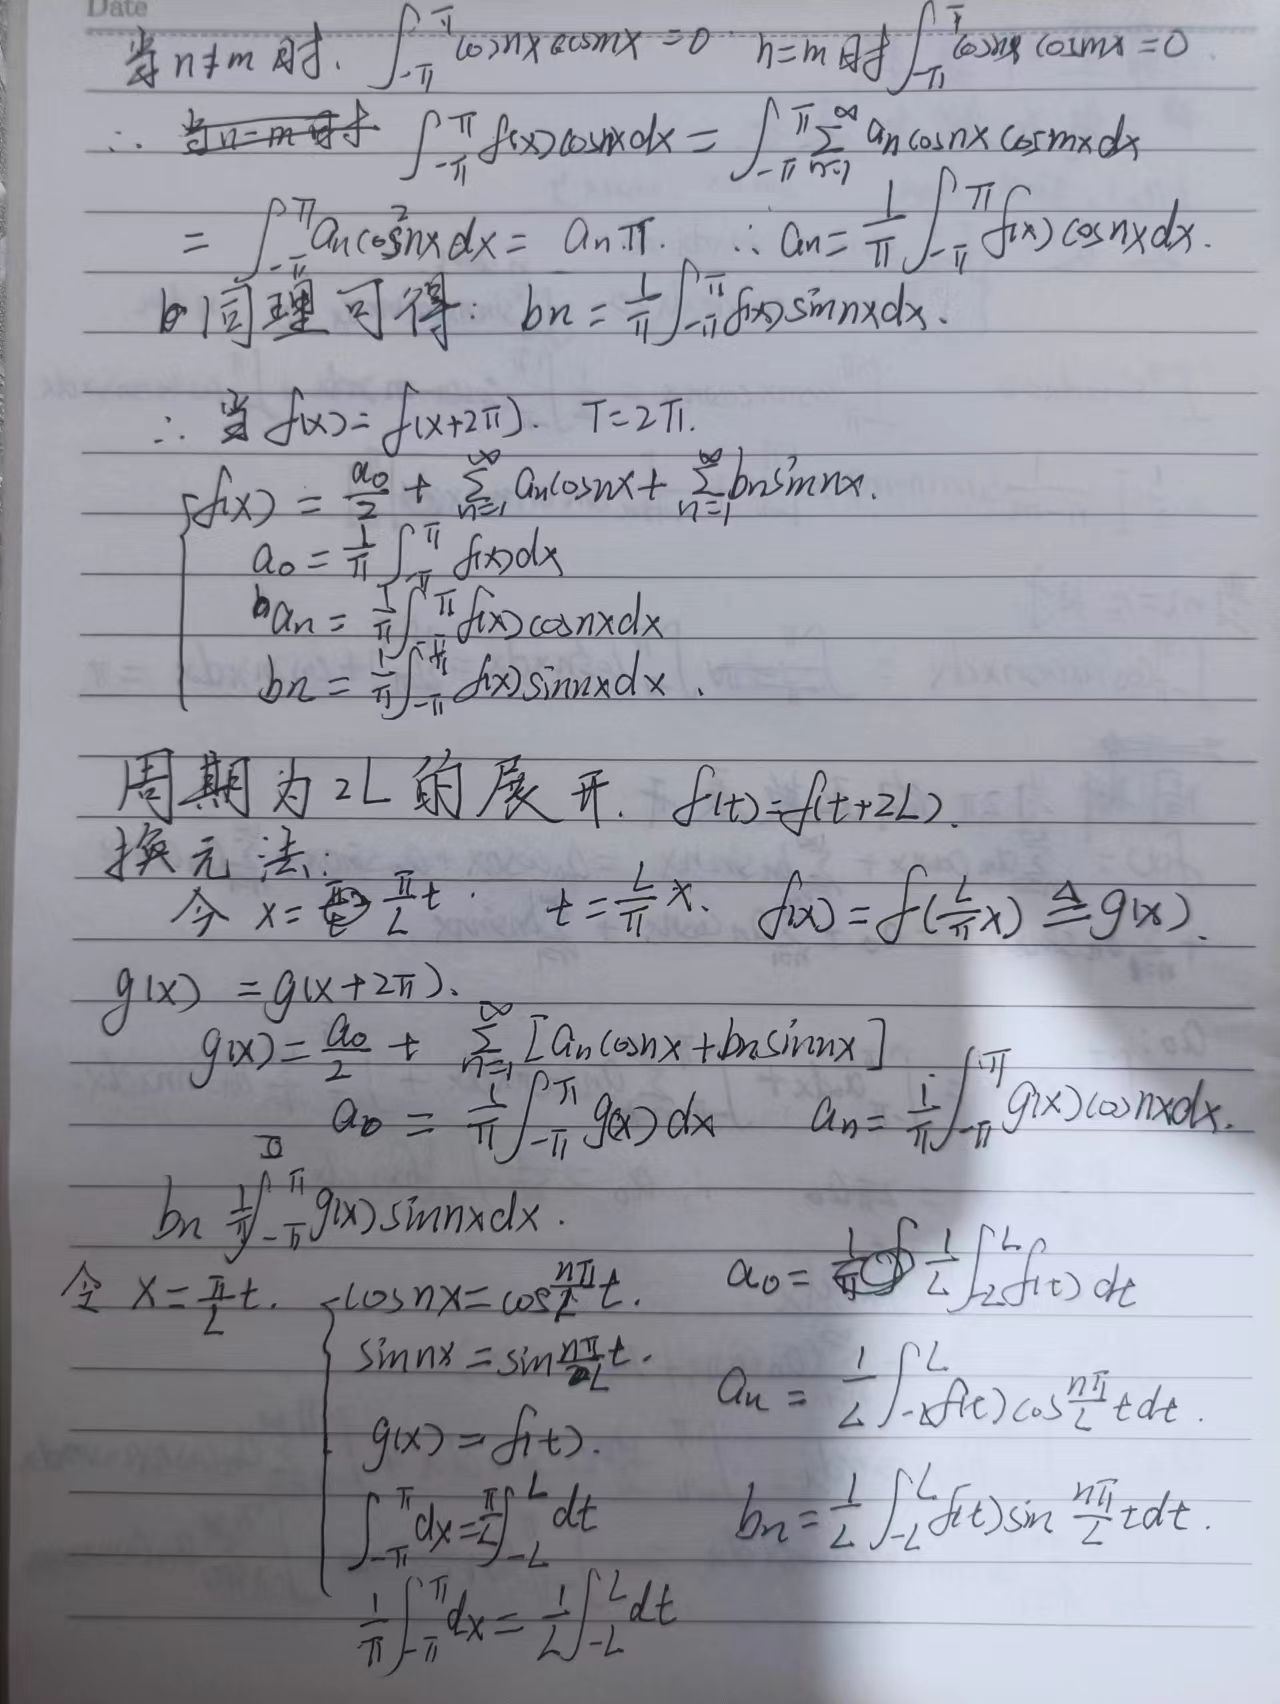 Date
当n≠m时. ∫_{-π}^{π} cosnx cosmx = 0  n=m时 ∫_{-π}^{π} cosnx cosmx = 0.
∴ ∫_{-π}^{π} f(x)cosnxdx = ∫_{-π}^{π} Σ_{n=1}^{∞} an cosnx cosmx dx
= ∫_{-π}^{π} an cos²nx dx = anπ. ∴ an = 1/π ∫_{-π}^{π} f(x)cosnxdx.
同理可得: bn = 1/π ∫_{-π}^{π} f(x)sinnxdx.
∴ 当 f(x) = f(x+2π). T=2π.
f(x) = a0/2 + Σ_{n=1}^{∞} an cosnx + Σ_{n=1}^{∞} bn sinnx.
a0 = 1/π ∫_{-π}^{π} f(x)dx
an = 1/π ∫_{-π}^{π} f(x)cosnxdx
bn = 1/π ∫_{-π}^{π} f(x)sinnxdx.
周期为2L的展开. f(t)=f(t+2L).
换元法:
令 x = π/L t. t = L/π x. f(x) = f(L/π x) ≜ g(x).
g(x) = g(x+2π).
g(x) = a0/2 + Σ_{n=1}^{∞} [an cosnx + bn sinnx]
a0 = 1/π ∫_{-π}^{π} g(x)dx  an = 1/π ∫_{-π}^{π} g(x)cosnxdx.
bn 1/π ∫_{-π}^{π} g(x)sinnxdx.
令 x = π/L t. cosnx = cos nπ/L t.
sinnx = sin nπ/L t.
g(x) = f(t).
∫_{-π}^{π} dx = π/L ∫_{-L}^{L} dt
1/π ∫_{-π}^{π} dx = 1/L ∫_{-L}^{L} dt
a0 = 1/L ∫_{-L}^{L} f(t)dt
an = 1/L ∫_{-L}^{L} f(t)cos nπ/L tdt.
bn = 1/L ∫_{-L}^{L} f(t)sin nπ/L tdt.